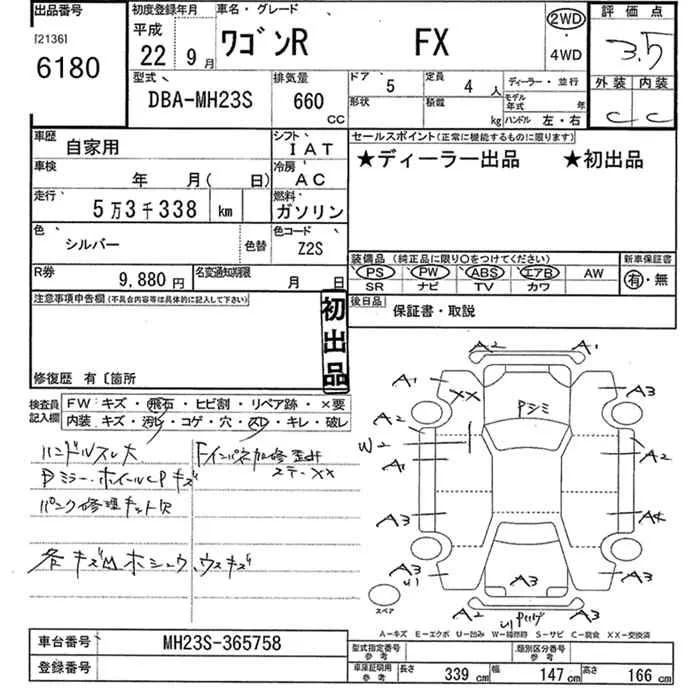 出品番号
[2136]
6180
初度登録年月
平成
22 9月
車名・グレード
ワゴンR FX
2WD
・
4WD
評価点
3.5
外装 内装
C C
型式
DBA-MH23S
排気量
660
CC
ドア 5
定員 4 人
形状
積載 kg
ディーラー・並行
モデル年式 年
ハンドル 左・右
車歴 自家用
シフト IAT
車検 年 月( 日)
冷房 AC
走行 5万3千338 km
燃料 ガソリン
色 シルバー 色替
色コード Z2S
R券 9,880円
名変通知期限 月 日
セールスポイント(正常に機能するものに限ります)
★ディーラー出品 ★初出品
装備品(純正品に限り○をつけてください)
PS PW ABS エアB AW
SR ナビ TV カワ
新車保証書
有・無
後日品 保証書・取説
注意事項申告欄(不具合内容等は具体的に記入して下さい)
初出品
修復歴 有〔箇所
検査員記入欄
FW:キズ・飛石・ヒビ割・リペア跡・×要
内装:キズ・汚レ・コゲ・穴・スレ・キレ・破レ
ハンドルスレ大
Dミラー・ホイールCPキズ
パンク修理キット欠
Fインパネ加修歪
ステーXX
各キズ凹ホシュウ、ウスキズ
A2 A1
A1 XX A3
Pシミ
A2 W2 A1 A2
A3 A4
A3 U1 A3 A3
A2 U1 A1
スペア
A−キズ E−エクボ U−凹み W−補修跡 S−サビ C−腐食 XX−交換済
車台番号 MH23S-365758
登録番号
型式指定番号
参考
類別区分番号
参考
車庫証明用
参考
長さ 339 cm 幅 147 cm 高さ 166 cm